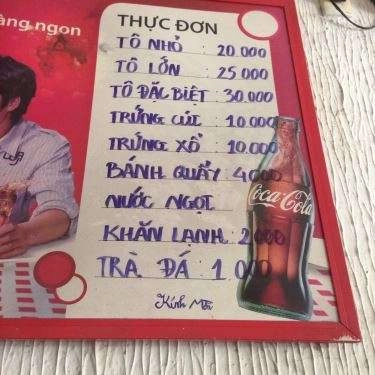 àng ngon
THỰC ĐƠN
TÔ NHỎ : 20.000
TÔ LỚN : 25.000
TÔ ĐẶC BIỆT : 30.000
TRỨNG CÚT : 10.000
TRỨNG XỔ : 10.000
BÁNH QUẨY : 4000
NƯỚC NGỌT
KHĂN LẠNH : 2.000
TRÀ ĐÁ : 1 000
Kính Mời
Coca-Cola